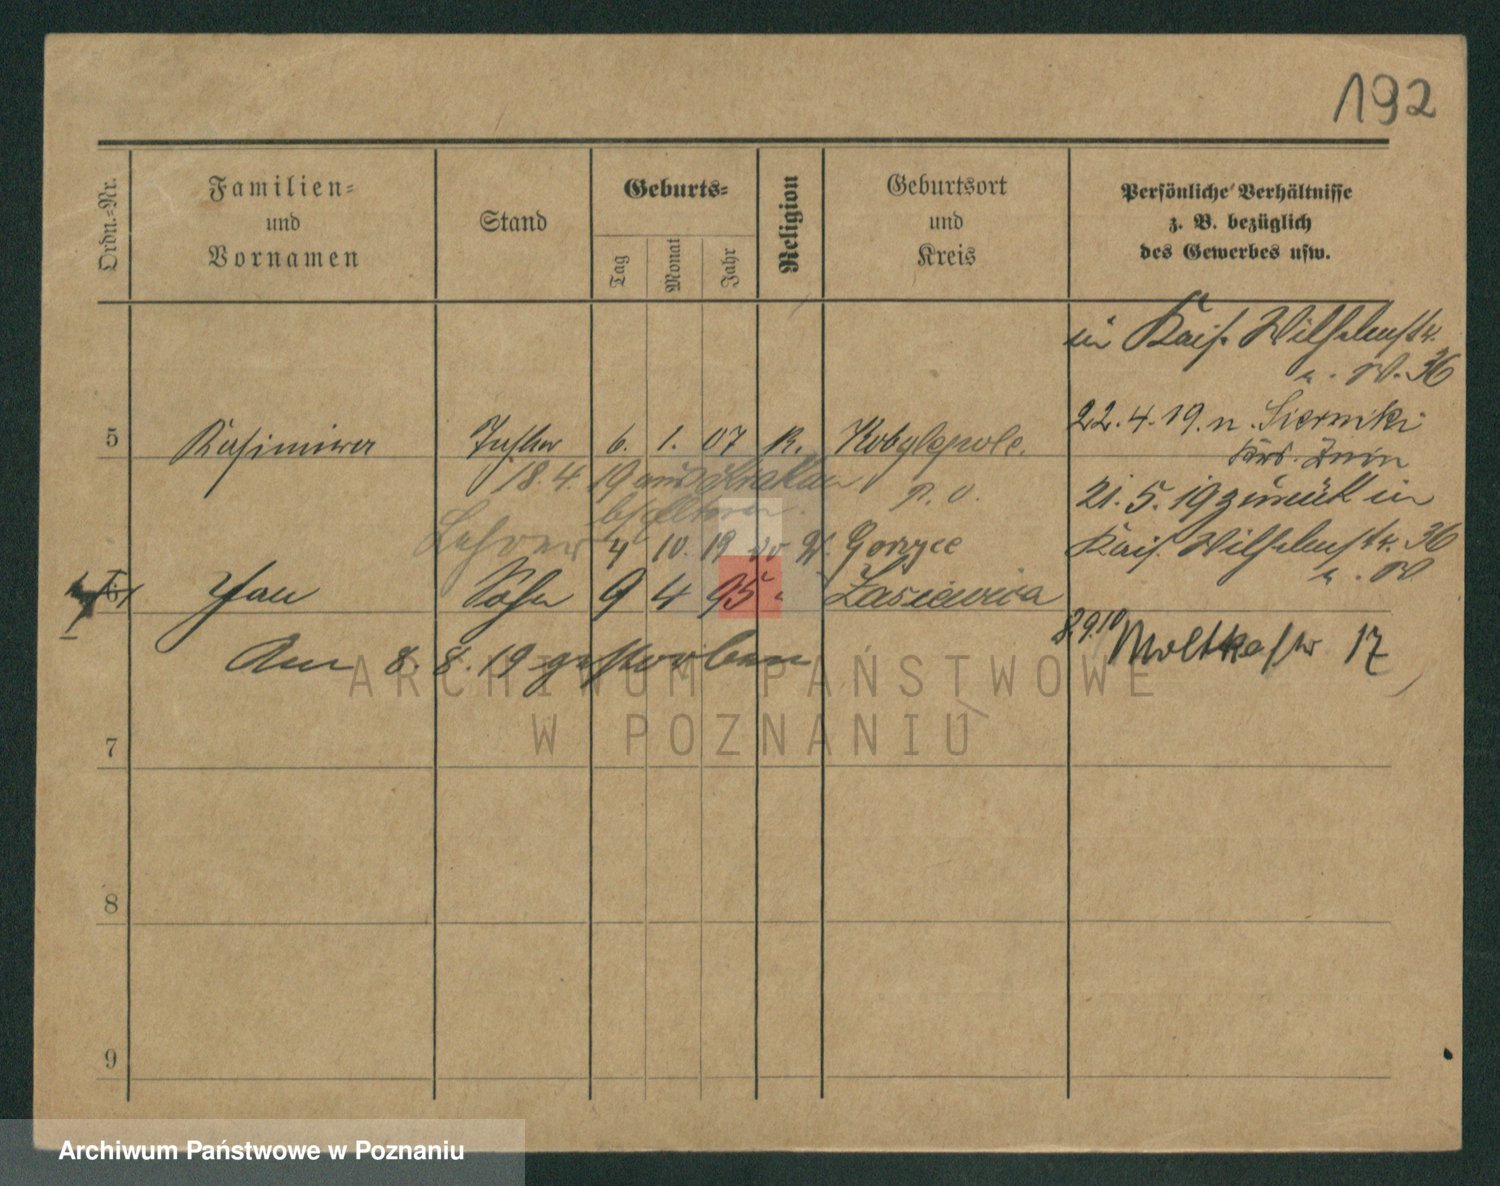 192
Ordn.-Nr.
Familien-
und
Vornamen
Stand
Geburts-
Tag
Monat
Jahr
Religion
Geburtsort
und
Kreis
Persönliche Verhältnisse
z. B. bezüglich
des Gewerbes usw.
in Kais. Wilhelmstr.
36
5 Kasimira Tochter 6. 1. 07 K. Kobylepole
22.4.19. n. Sierniki
Krs. Znin
18.4.19 aus
P. O.
21.5.19 zurück in
Lehrer 4 10. 19 Gorzyce
Kais. Wilhelmstr. 36
6 Jan Sohn 9 4 95 "
Am 8. 8. 19 gestorben
8.9.10 Moltkestr 17
7
8
9
ARCHIWUM PAŃSTWOWE
W POZNANIU
Archiwum Państwowe w Poznaniu